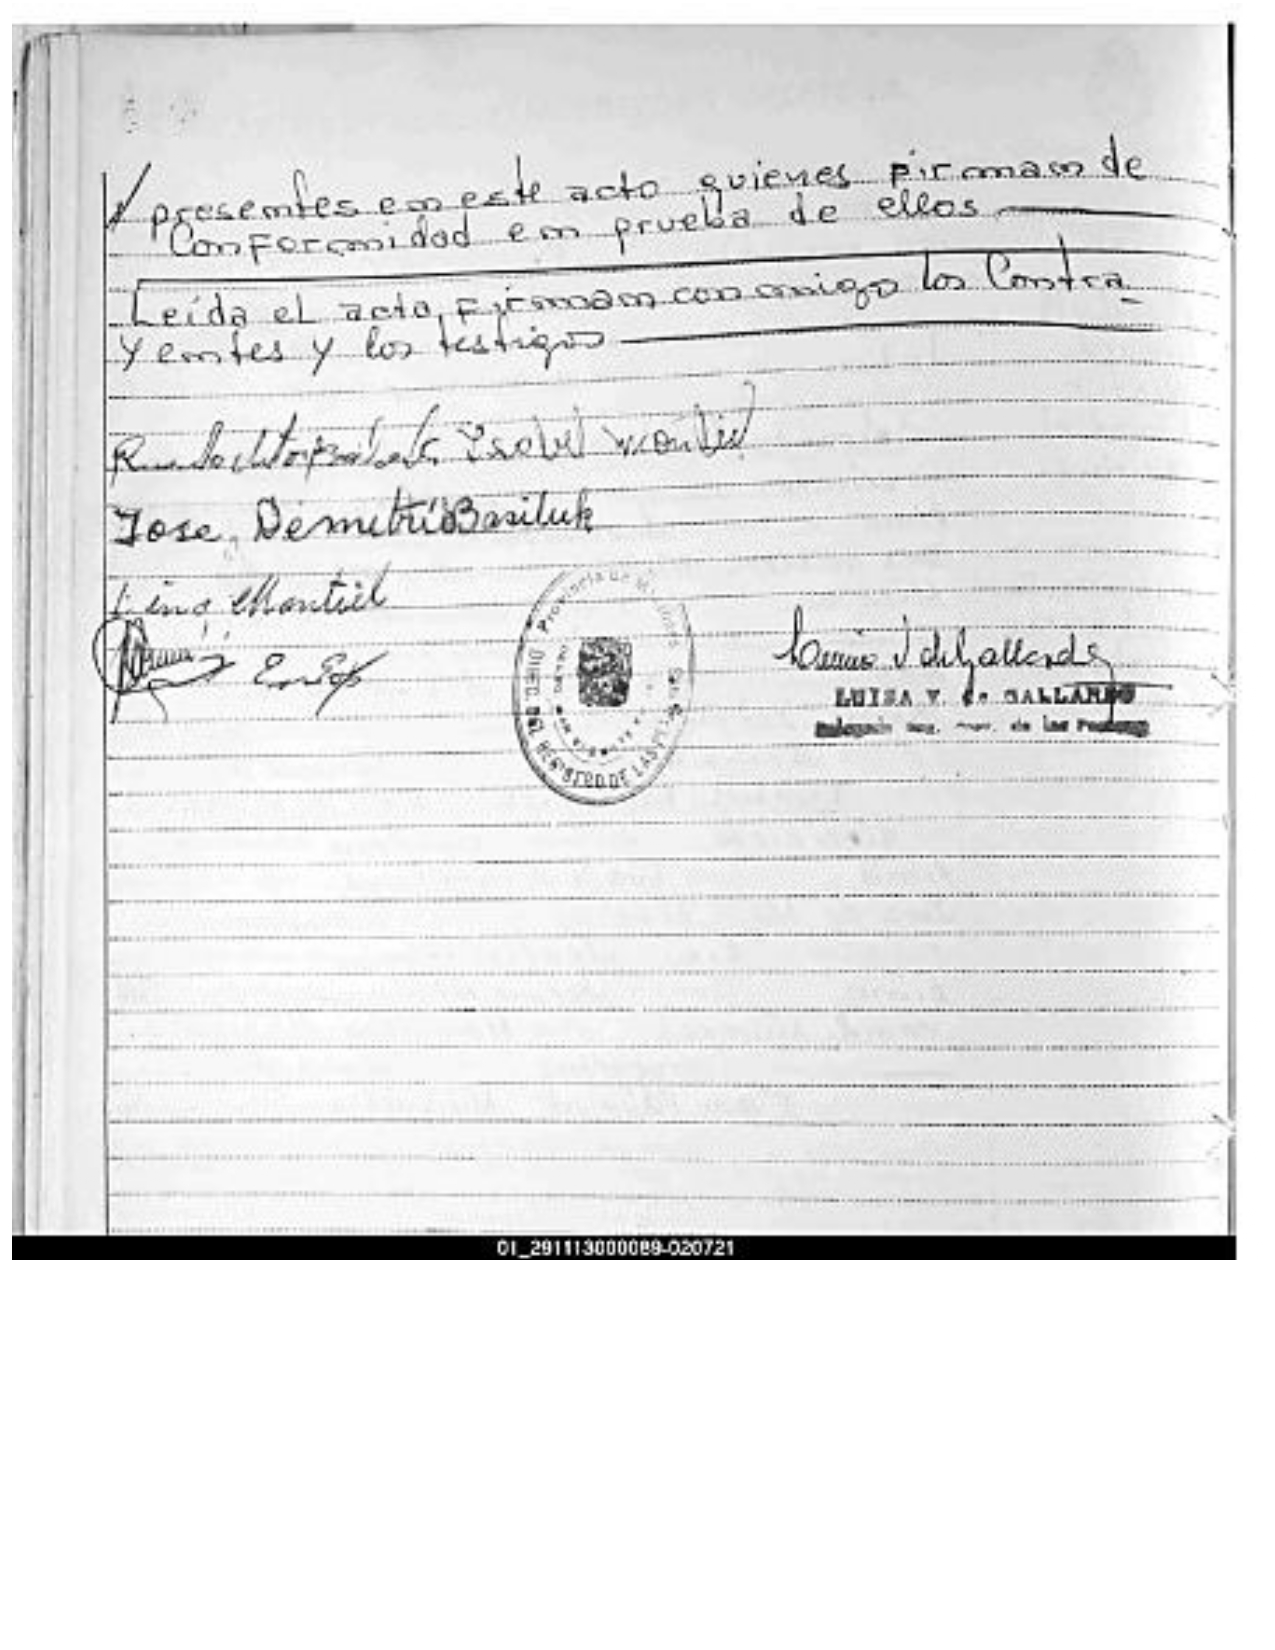 presentes en este acto quienes firman de
Conformidad en prueba de ellos
Leída el acta, firman con migo los Contra
yentes y los testigos
Ysabel Montiel
Jose, Demetrio Basiluk
Lino Montiel
Provincia de Misiones
DIREC. DEL REGISTRO DE LAS PERS
Luisa V de Gallardo
LUISA V. de GALLARDO
de las Personas
01_291113000089-020721